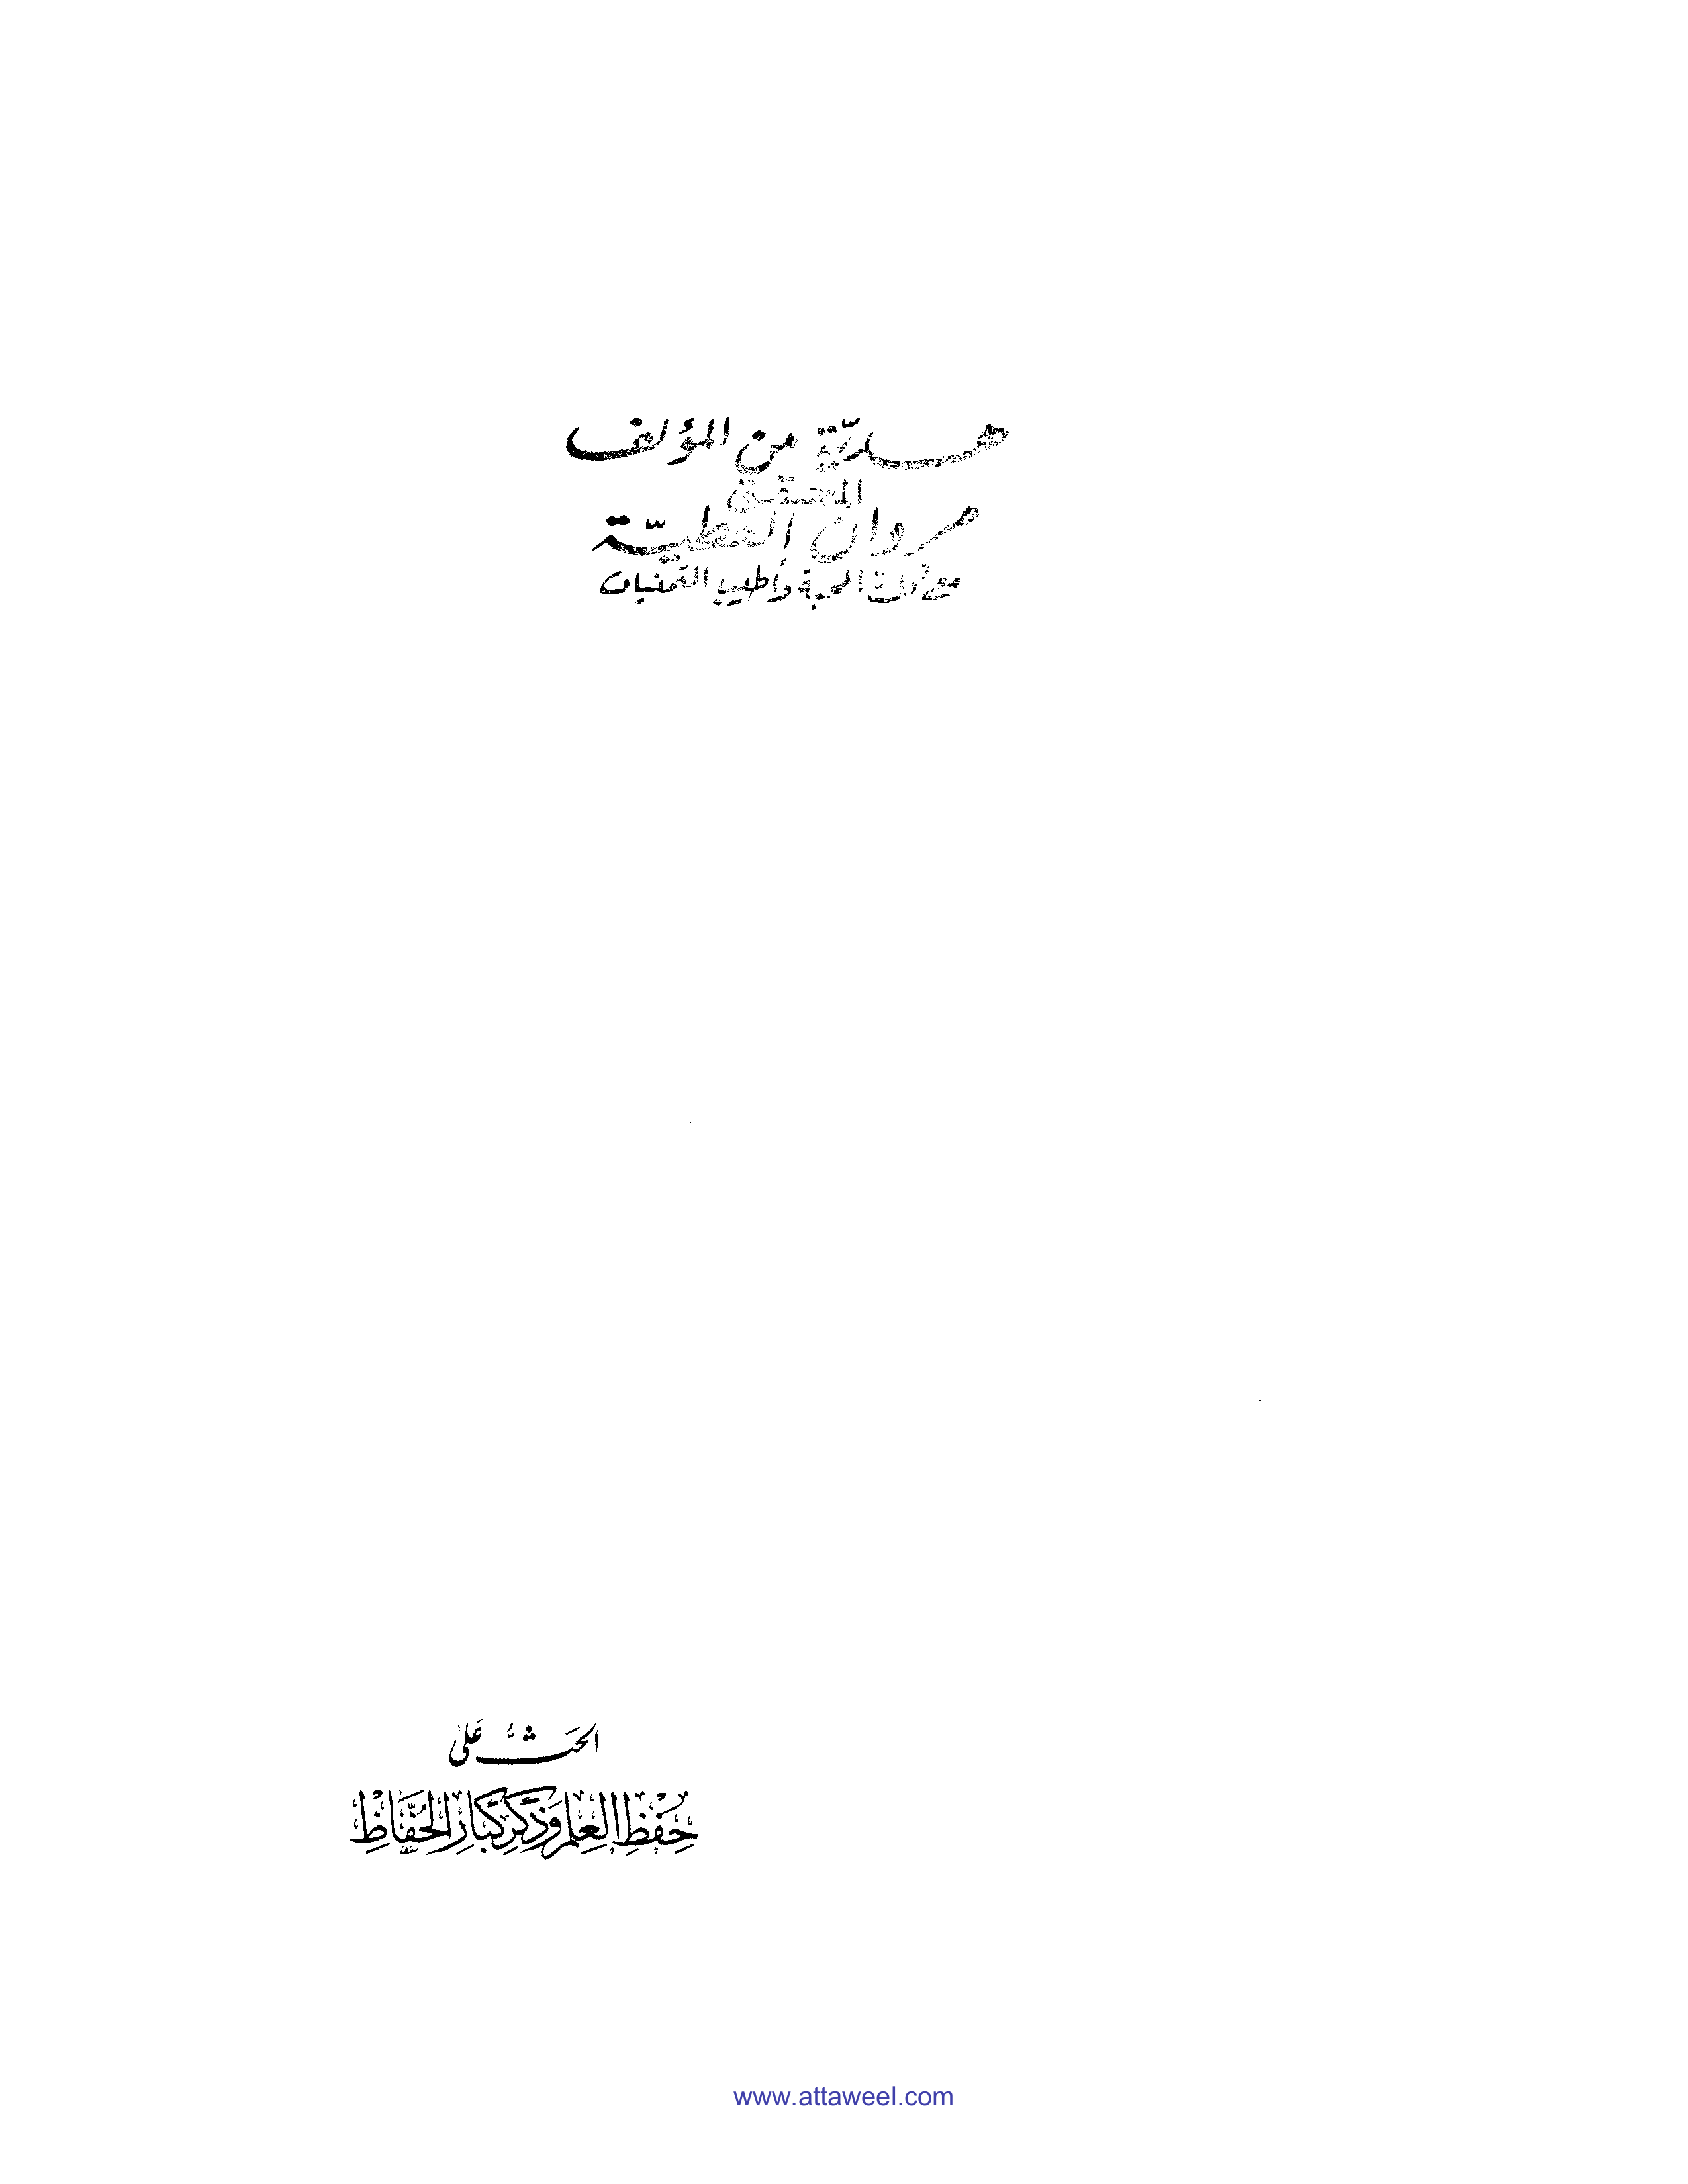 هديّة من المؤلف
المحقق
مروان العطيّة
مع المحبة وأطيب التمنيات
الحَثُّ عَلىٰ
حِفْظِ العِلمِ وَذِكْرِ كِبَارِ الحُفَّاظِ
www.attaweel.com